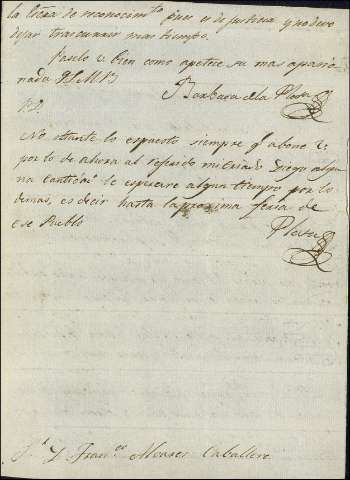 la letra de reconocim.to pues es de justicia y no devo
dejar trascurrir mas tiempo.
Paselo v bien como apetece su mas apasio
nada Q S M B
Barbara de la Plata
P.D.
No ostante lo espuesto siempre q.e abone v
por lo de ahora al referido mi criado Diego algu
na cantidad le esperare algun tiempo por lo
demas, es decir hasta la proxima feria de
ese Pueblo
Plata
S.r D. Fran.co Alvares Caballero